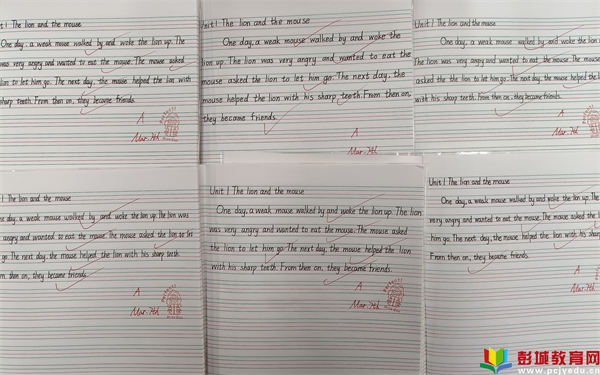 Unit 1 The lion and the mouse
One day, a weak mouse walked by and woke the lion up. The
was very angry and wanted to eat the mouse. The mouse asked
lion to let him go. The next day, the mouse helped the lion with
sharp teeth. From then on, they become friends.
A
Mar. 7th
Unit 1 The lion and the mouse
One day, a weak mouse walked by and woke the
lion up. The lion was very angry and wanted to eat the
mouse. The mouse asked the lion to let him go. The next day, the
mouse helped the lion with his sharp teeth. From then on,
they became friends.
A
Mar. 7th
Unit 1 The lion and the mouse
One day, a weak mouse walked by and woke the lion
The lion was very angry and wanted to eat the mouse. The mouse
asked the the lion to let him go. The next day, the mouse helped the
with his sharp teeth. From then on, they became friends.
A
Mar. 7th
1 The lion and the mouse
One day, a weak mouse walked by and woke the lion up. The lion was
angry and wanted to eat the mouse. The mouse asked the lion to let
go. The next day, the mouse helped the lion with his sharp teeth.
then on, they became friends.
A
Mar. 7th
Unit 1 The lion and the mouse
One day, a weak mouse walked by and woke the lion up. The lion
was very angry and wanted to eat the mouse. The mouse asked
the lion to let him go. The next day, the mouse helped the lion
with his sharp teeth. From then on, they became friends.
A
Mar. 7th
Unit 1 The lion and the mouse
One day, a weak mouse walked by and woke the lion up. The
very angry and wanted to eat the mouse. The mouse asked the
him go. The next day, the mouse helped the lion with his sharp
From then on, they became friends.
A
Mar. 7th
彭城教育网
www.pcjyedu.cn